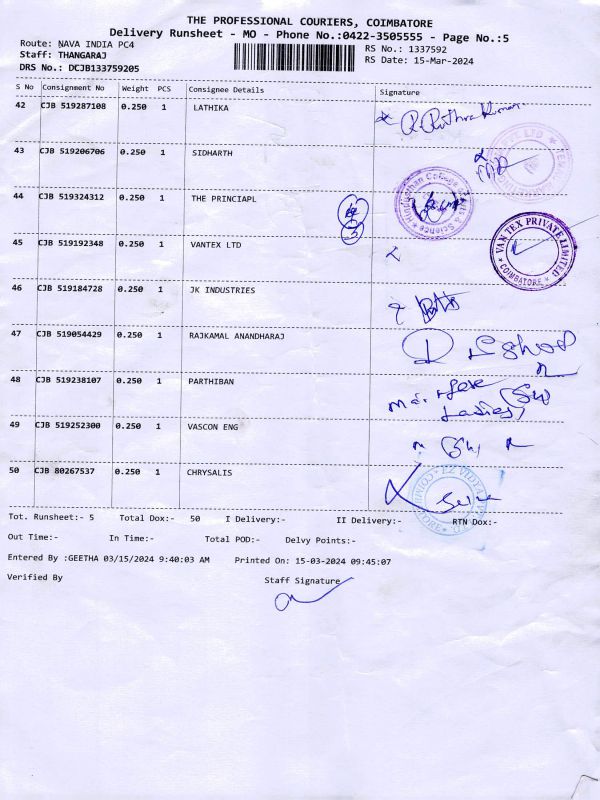 THE PROFESSIONAL COURIERS, COIMBATORE
Delivery Runsheet - MO - Phone No.:0422-3505555 - Page No.:5
Route: NAVA INDIA PC4
RS No.: 1337592
Staff: THANGARAJ
RS Date: 15-Mar-2024
DRS No.: DCJB133759205
S No Consignment No Weight PCS Consignee Details Signature
42 CJB 519287108 0.250 1 LATHIKA
43 CJB 519206706 0.250 1 SIDHARTH
44 CJB 519324312 0.250 1 THE PRINCIAPL
45 CJB 519192348 0.250 1 VANTEX LTD
VAN TEX PRIVATE LIMITED
COIMBATORE
46 CJB 519184728 0.250 1 JK INDUSTRIES
47 CJB 519054429 0.250 1 RAJKAMAL ANANDHARAJ
48 CJB 519238107 0.250 1 PARTHIBAN
49 CJB 519252300 0.250 1 VASCON ENG
50 CJB 80267537 0.250 1 CHRYSALIS
Tot. Runsheet:- 5 Total Dox:- 50 I Delivery:- II Delivery:- RTN Dox:-
Out Time:- In Time:- Total POD:- Delvy Points:-
Entered By :GEETHA 03/15/2024 9:40:03 AM Printed On: 15-03-2024 09:45:07
Verified By Staff Signature